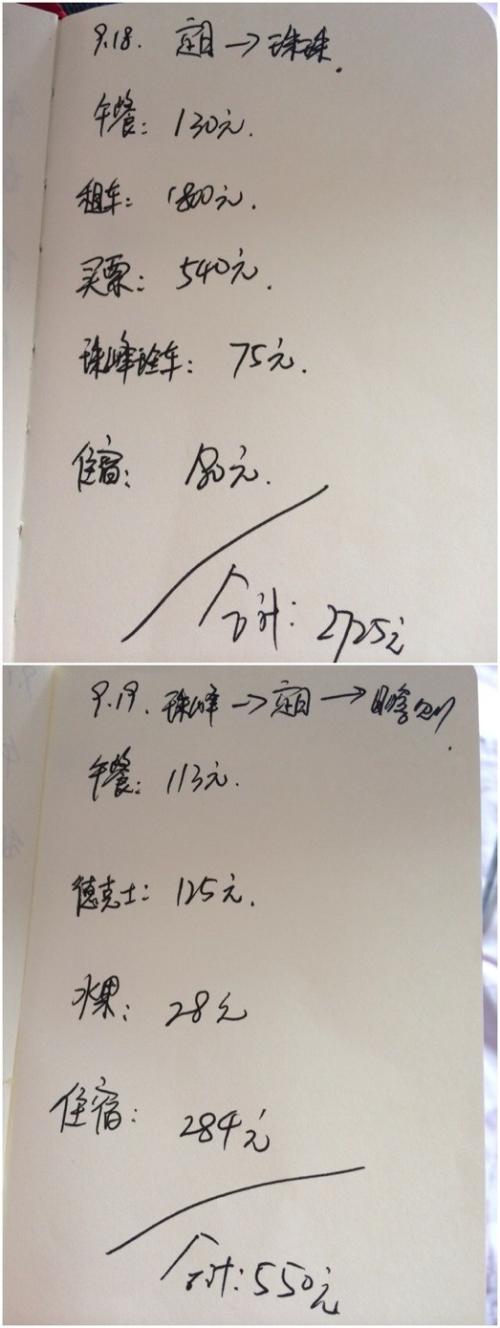 9.18. 定日→珠珠.
午餐: 130元.
租车: 1800元.
买票: 540元.
珠峰 车: 75元.
住宿: 180元.
合计: 2725元
9.19. 珠峰→定日→日喀则.
午餐: 113元.
德克士: 125元.
水果: 28元
住宿: 284元
合计: 550元